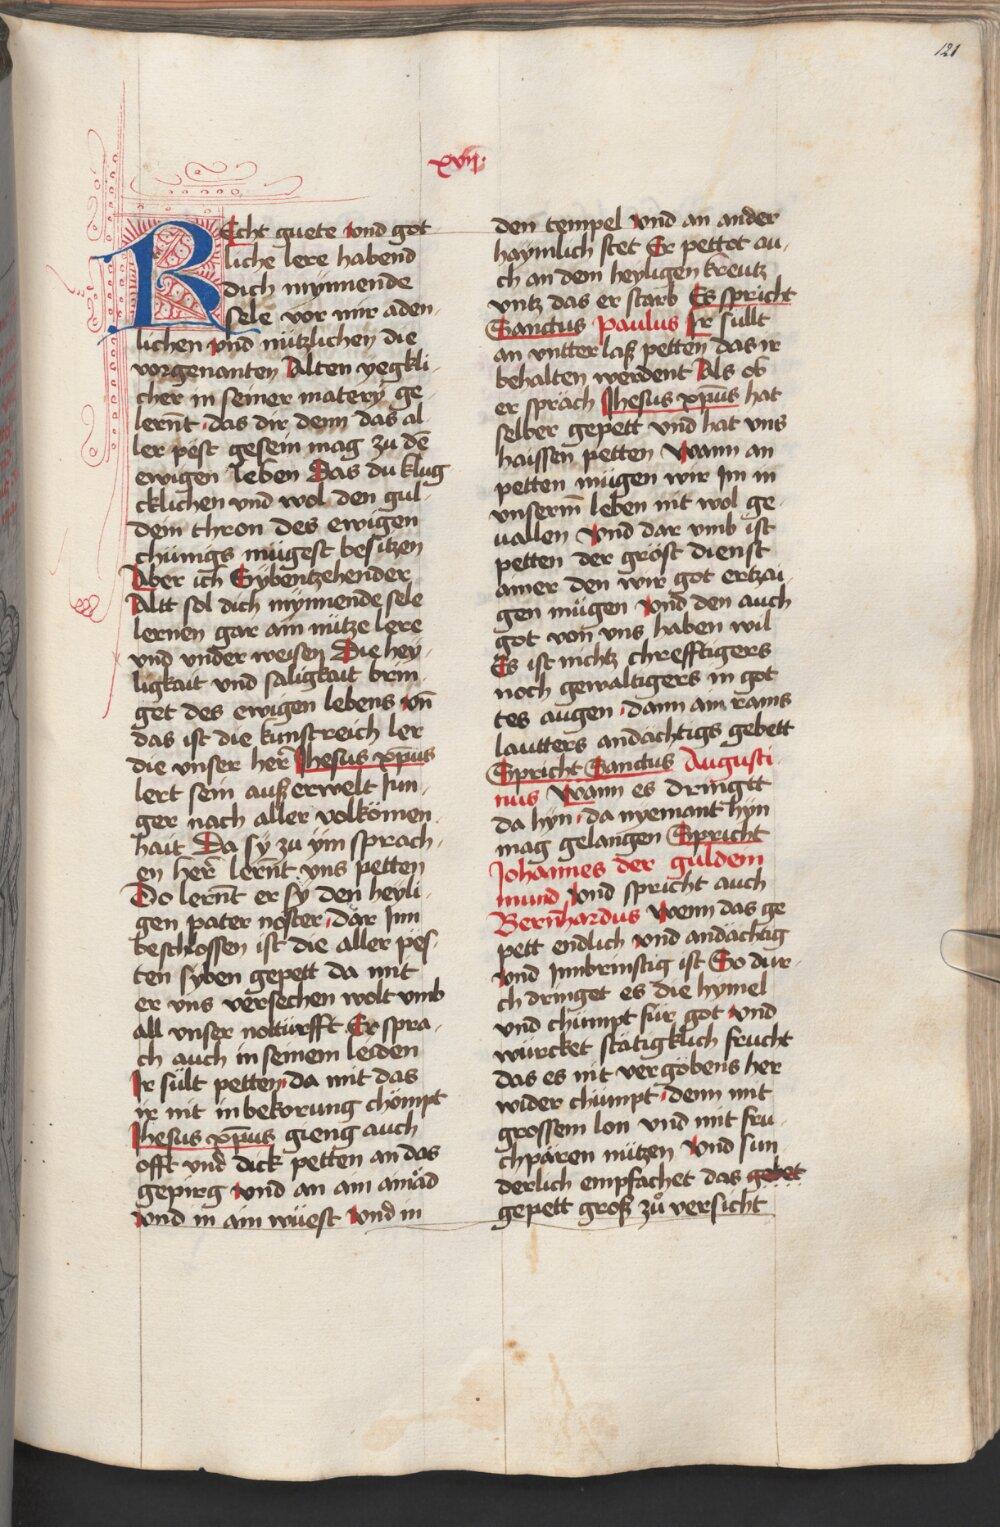 121
xvij.
REcht guete vnd got
liche lere habend
dich mynnende
sele vor mir aden
lichen vnd nützlichen die
vorgenanten Alten yegkli
cher in seiner matery ge
lernt · das dir denn das al
ler pest gesein mag zu dē
ewigen leben Das du klug
cklichen vnd wol den gul
dem thron des ewigen
chünigs mügest besitzen
Aber ich Sybentzehender
Altt sol dich mynnende sele
lernen gar ain nütze lere
vnd vnder weisen Die hey
ligkait vnd saligkait brin
get des ewigen lebens vn̄
das ist die kunstreich ler
die vnser her̄ Jhesus xp̄us
lert sein auß erwelt Jun
ger nach aller volkōmen
hait Da sy zu ym sprach
en her̄ lernt vns petten
Do lernt er sy den heyli
gen pater noster · dar Inn
beschlossen ist die aller pes
ten syben gepett da mit
er vns versechen wolt vmb
all vnser notturfft Er spra
ch auch in seinem leiden
Ir sült petten · da mit das
ir nit in bekorung chömpt
Jhesus xp̄us gieng auch
offt vnd dick petten an das
gepirg vnd an am ainäd
vnd in ain wüest vnd in
den tempel vnd an ander
haymlich stet Er pettot au
ch an dem heyligen kreutz
vntz das er starb Es spricht
Sanctus Paulus Ir süllt
an vntter laß petten das ir
behalten werdent Als ob
er sprach Jhesus xp̄us hat
selber gepett vnd hat vns
haissen petten Wann an
petten mügen wir Im in
vnserm̄ leben nit wol ge
uallen Vnd dar vmb ist
petten der gröst dienst
ainer den wir got ertzai
gen mügen vnd den auch
got von vns haben wil
Es ist nichtz chrefftigers
noch gewaltigers in got
tes augen · dann ain rains
lautters andachtigs gebett
Spricht Sanctus Augusti
nus Wann es dringtt
da hyn · da nyemant hyn
mag gelangen Spricht
Johannes der guldein
mund Vnd spricht auch
Bernhardus Wenn das ge
pett endlich vnd andachtig
vnd Innbrinstig ist So dur
ch dringet es die hymel
vnd chümpt für got vnd
würcket stätigklich frucht
das es nit vergöbens her
wider chümpt · denn mit
grossem lon vnd mit fru
chpären nützen Vnd sun
derlich empfachet das gebet
gepett groß zů versicht